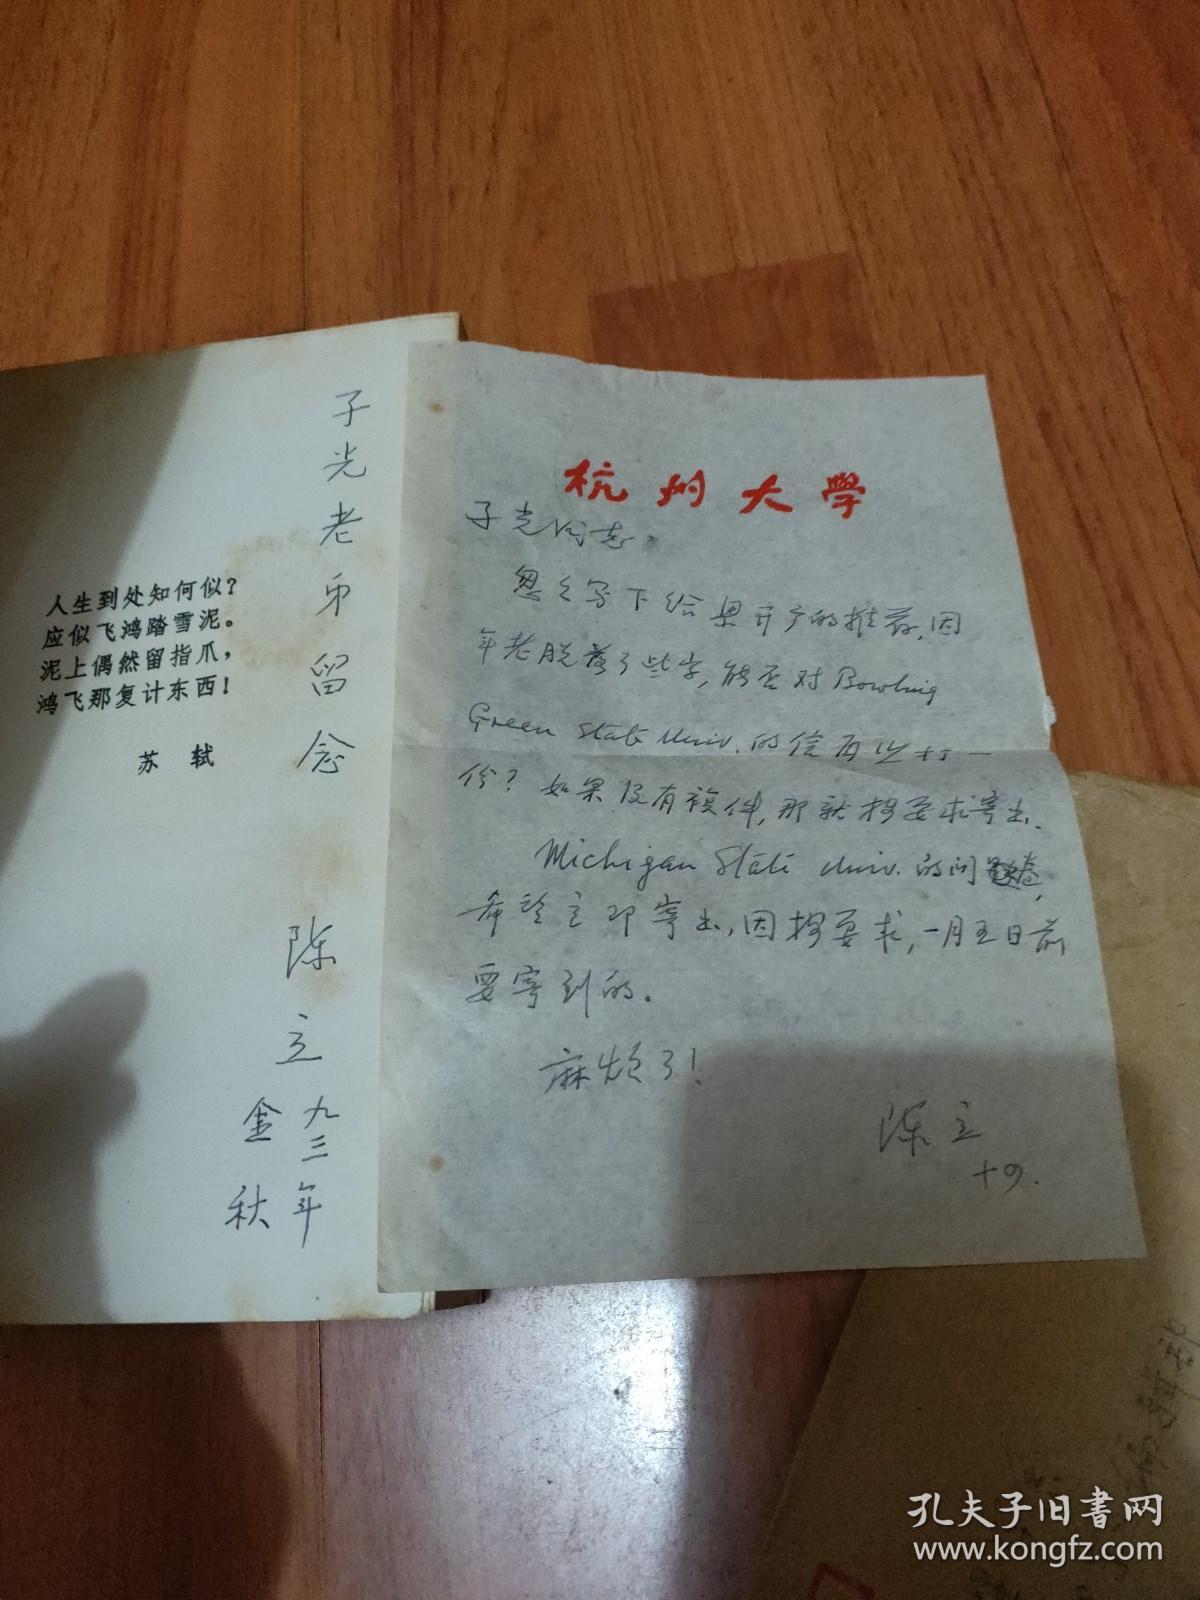 子光老弟留念
陈立
九三年
金秋
人生到处知何似？
应似飞鸿踏雪泥。
泥上偶然留指爪，
鸿飞那复计东西！
苏轼
杭州大学
子光同志：
忽々写下给 开 的推荐，因
年老脱落了些字，能否对 Bowling
Green State Univ. 的信再 打一
份？如果没有複件，那就按要求寄出。
Michigan State Univ. 的问卷，
希望立即寄出，因按要求，一月五日前
要寄到的。
麻烦了！
陈立
孔夫子旧书网
www.kongfz.com